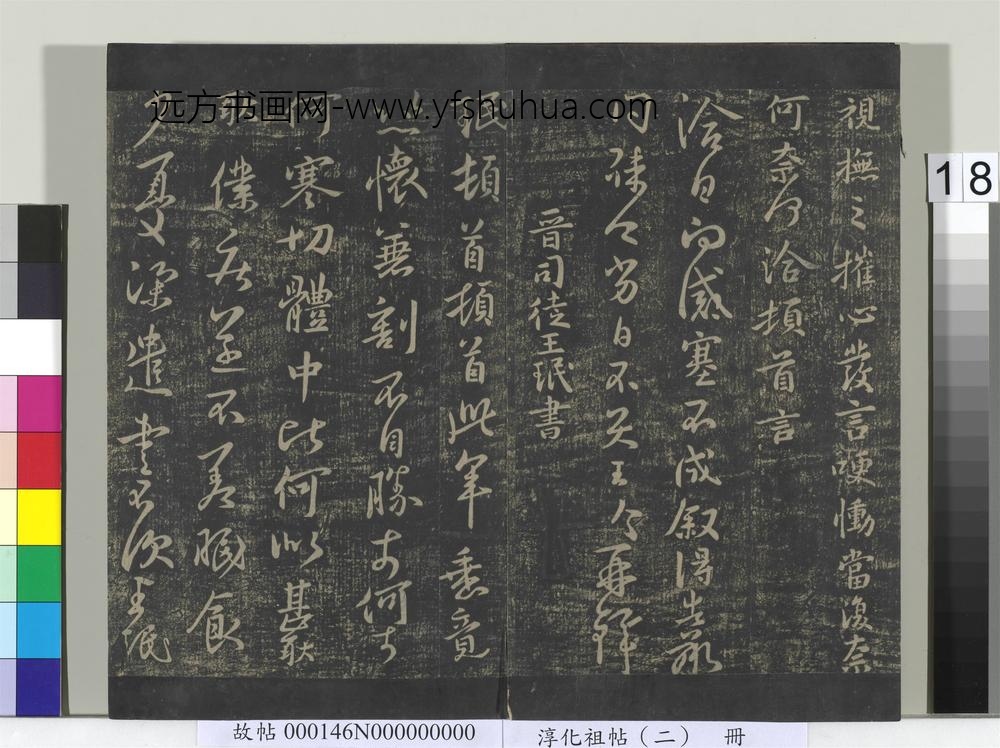 視撫之摧心發言哽慟當復奈
何奈何洽頓首言
洽白 感塞不成叙得告承
問 日不 王 再拜
晉司徒王珉書
珉頓首頓首此年垂竟
悲懷兼割不自勝奈何奈
何寒切體中比何似甚耿
耿僕 不差 食
少 深遣書不次王珉
远方书画网-www.yfshuhua.com
18
故帖 000146N000000000
淳化祖帖（二） 冊